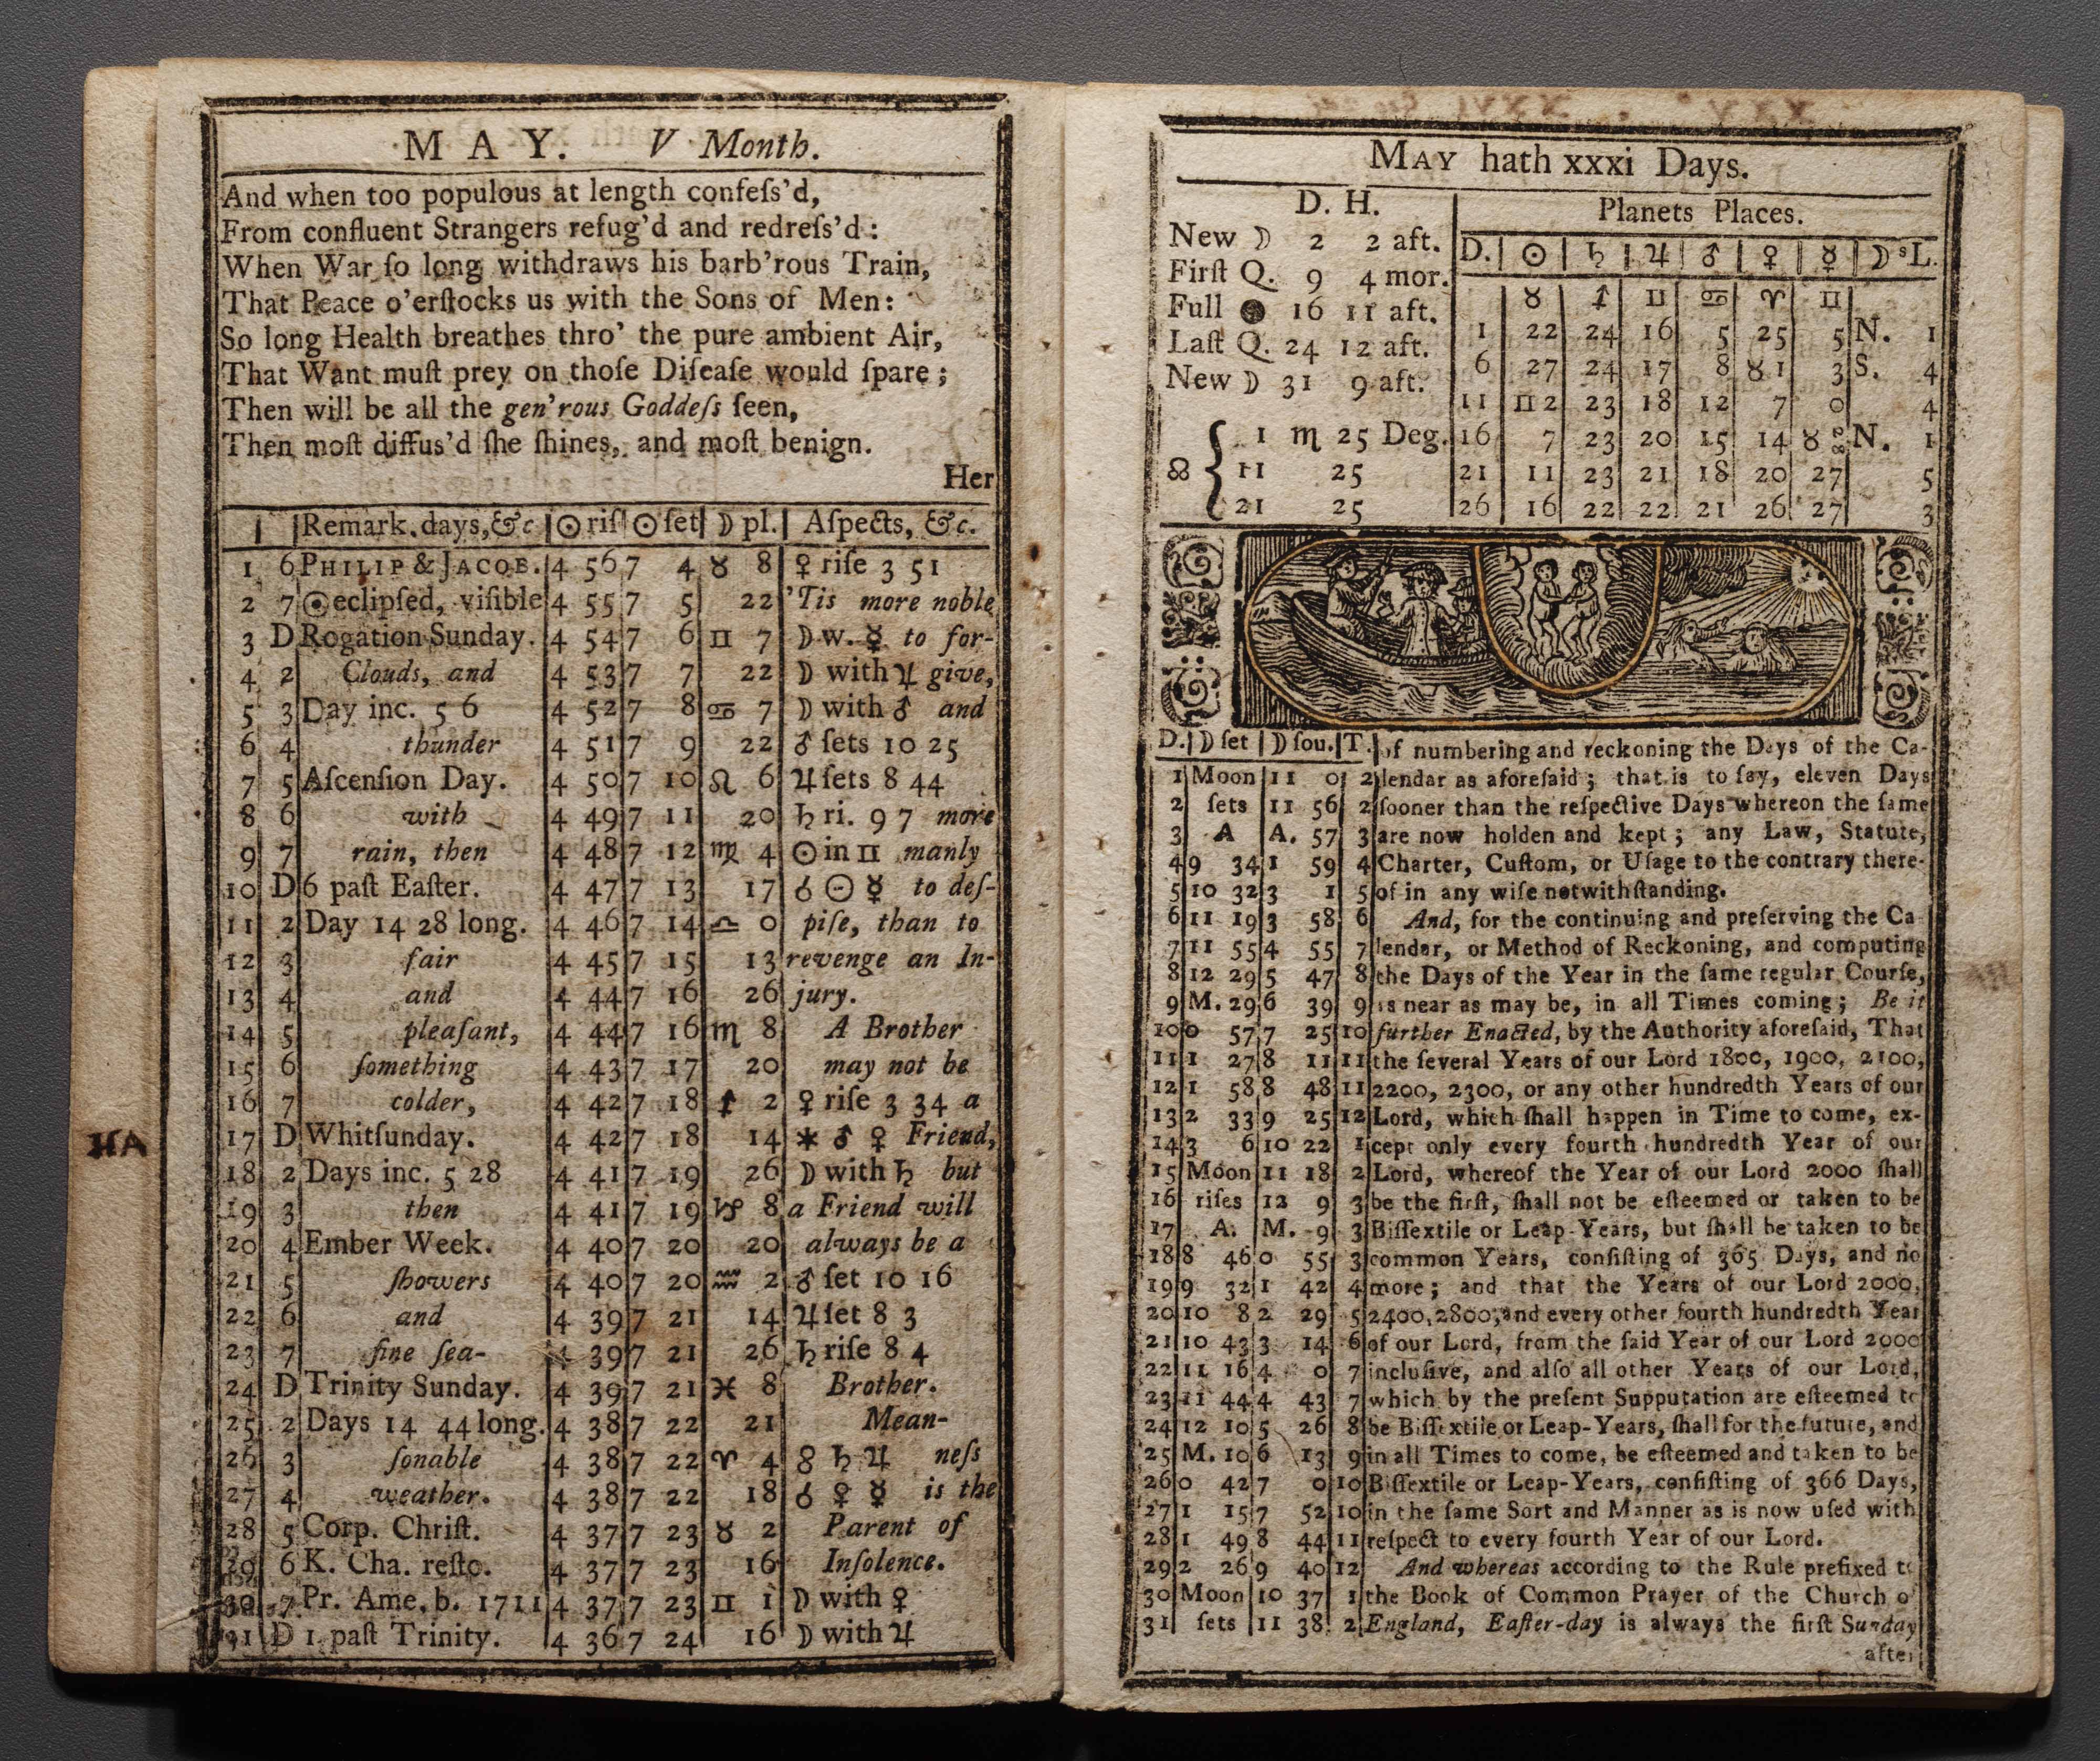 MAY. V Month.
And when too populous at length confeſs'd,
From confluent Strangers refug'd and redreſs'd:
When War ſo long withdraws his barb'rous Train,
That Peace o'erſtocks us with the Sons of Men:
So long Health breathes thro' the pure ambient Air,
That Want muſt prey on thoſe Diſeaſe would ſpare;
Then will be all the gen'rous Goddeſs ſeen,
Then moſt diffus'd ſhe ſhines, and moſt benign.
Her
Remark. days, &c ☉ riſ ☉ ſet ☽ pl. Aſpects, &c.
1 6 PHILIP & JACOB. 4 56 7 4 ♉ 8 ♀ riſe 3 51
2 7 ☉ eclipſed, viſible 4 55 7 5 22 'Tis more noble
3 D Rogation Sunday. 4 54 7 6 ♊ 7 ☽ w. ☿ to for-
4 2 Clouds, and 4 53 7 7 22 ☽ with ♃ give,
5 3 Day inc. 5 6 4 52 7 8 ♋ 7 ☽ with ♂ and
6 4 thunder 4 51 7 9 22 ♂ ſets 10 25
7 5 Aſcenſion Day. 4 50 7 10 ♌ 6 ♃ ſets 8 44
8 6 with 4 49 7 11 20 ♄ ri. 9 7 more
9 7 rain, then 4 48 7 12 ♍ 4 ☉ in ♊ manly
10 D 6 paſt Eaſter. 4 47 7 13 17 ☌ ☉ ☿ to deſ-
11 2 Day 14 28 long. 4 46 7 14 ♎ 0 piſe, than to
12 3 fair 4 45 7 15 13 revenge an In-
13 4 and 4 44 7 16 26 jury.
14 5 pleaſant, 4 44 7 16 ♏ 8 A Brother
15 6 ſomething 4 43 7 17 20 may not be
16 7 colder, 4 42 7 18 ♐ 2 ♀ riſe 3 34 a
17 D Whitſunday. 4 42 7 18 14 ⚹ ♂ ♀ Friend,
18 2 Days inc. 5 28 4 41 7 19 26 ☽ with ♄ but
19 3 then 4 41 7 19 ♑ 8 a Friend will
20 4 Ember Week. 4 40 7 20 20 always be a
21 5 ſhowers 4 40 7 20 ♒ 2 ♂ ſet 10 16
22 6 and 4 39 7 21 14 ♃ ſet 8 3
23 7 fine ſea- 4 39 7 21 26 ♄ riſe 8 4
24 D Trinity Sunday. 4 39 7 21 ♓ 8 Brother.
25 2 Days 14 44 long. 4 38 7 22 21 Mean-
26 3 ſonable 4 38 7 22 ♈ 4 ☍ ♄ ♃ neſs
27 4 weather. 4 38 7 22 18 ☌ ♀ ☿ is the
28 5 Corp. Chriſt. 4 37 7 23 ♉ 2 Parent of
29 6 K. Cha. reſto. 4 37 7 23 16 Inſolence.
30 7 Pr. Ame. b. 1711 4 37 7 23 ♊ 1 ☽ with ♀
31 D 1 paſt Trinity. 4 36 7 24 16 ☽ with ♃
MAY hath xxxi Days.
D. H.
New ☽ 2 2 aft.
Firſt Q. 9 4 mor.
Full ● 16 11 aft.
Laſt Q. 24 12 aft.
New ☽ 31 9 aft.
☊ { 1 ♏ 25 Deg.
11 25
21 25
Planets Places.
D. ☉ ♄ ♃ ♂ ♀ ☿ ☽sL.
♉ ♐ ♊ ♋ ♈ ♊
1 22 24 16 5 25 5 N. 1
6 27 24 17 8 ♉ 1 3 S. 4
11 ♊ 2 23 18 12 7 0 4
16 7 23 20 15 14 ♉ N. 1
21 11 23 21 18 20 27 5
26 16 22 22 21 26 27 3
D. ☽ ſet ☽ ſou. T. of numbering and reckoning the Days of the Ca-
1 Moon 11 0 2 lendar as aforeſaid; that is to ſay, eleven Days
2 ſets 11 56 2 ſooner than the reſpective Days whereon the ſame
3 A A. 57 3 are now holden and kept; any Law, Statute,
4 9 34 1 59 4 Charter, Cuſtom, or Uſage to the contrary there-
5 10 32 3 1 5 of in any wiſe notwithſtanding.
6 11 19 3 58 6 And, for the continuing and preſerving the Ca-
7 11 55 4 55 7 lendar, or Method of Reckoning, and computing
8 12 29 5 47 8 the Days of the Year in the ſame regular Courſe,
9 M. 29 6 39 9 as near as may be, in all Times coming; Be it
10 0 57 7 25 10 further Enacted, by the Authority aforeſaid, That
11 1 27 8 11 11 the ſeveral Years of our Lord 1800, 1900, 2100,
12 1 58 8 48 11 2200, 2300, or any other hundredth Years of our
13 2 33 9 25 12 Lord, which ſhall happen in Time to come, ex-
14 3 6 10 22 1 cept only every fourth hundredth Year of our
15 Moon 11 18 2 Lord, whereof the Year of our Lord 2000 ſhall
16 riſes 12 9 3 be the firſt, ſhall not be eſteemed or taken to be
17 A. M. 9 3 Biſſextile or Leap-Years, but ſhall be taken to be
18 8 46 0 55 3 common Years, conſiſting of 365 Days, and no
19 9 32 1 42 4 more; and that the Years of our Lord 2000,
20 10 8 2 29 5 2400, 2800, and every other fourth hundredth Year
21 10 43 3 14 6 of our Lord, from the ſaid Year of our Lord 2000
22 11 16 4 0 7 incluſive, and alſo all other Years of our Lord,
23 11 44 4 43 7 which by the preſent Supputation are eſteemed to
24 12 10 5 26 8 be Biſſextile or Leap-Years, ſhall for the future, and
25 M. 10 6 13 9 in all Times to come, be eſteemed and taken to be
26 0 42 7 0 10 Biſſextile or Leap-Years, conſiſting of 366 Days,
27 1 15 7 52 10 in the ſame Sort and Manner as is now uſed with
28 1 49 8 44 11 reſpect to every fourth Year of our Lord.
29 2 26 9 40 12 And whereas according to the Rule prefixed to
30 Moon 10 37 1 the Book of Common Prayer of the Church of
31 ſets 11 38 2 England, Eaſter-day is always the firſt Sunday
after